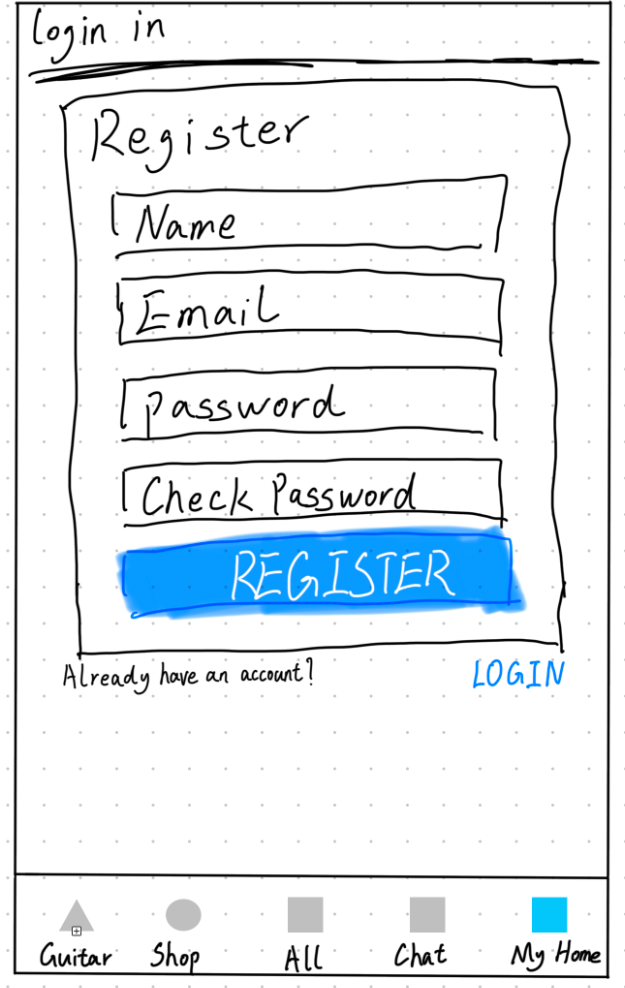 Login in
Register
Name
Email
Password
Check Password
REGISTER
Already have an account? LOGIN
Guitar Shop All Chat My Home